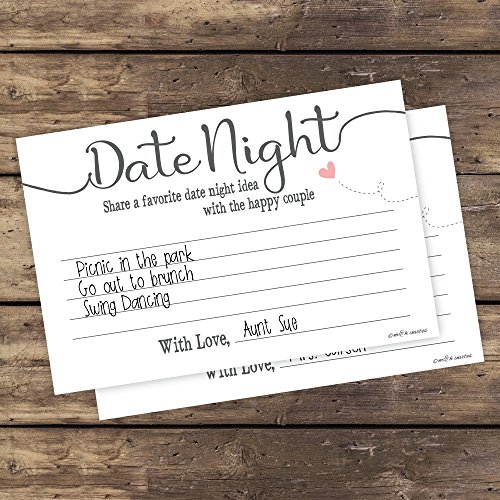 Date Night
Share a favorite date night idea
with the happy couple
Picnic in the park
Go out to brunch
Swing Dancing
With Love, Aunt Sue
©m&h invites
With Love,
©m&h invites